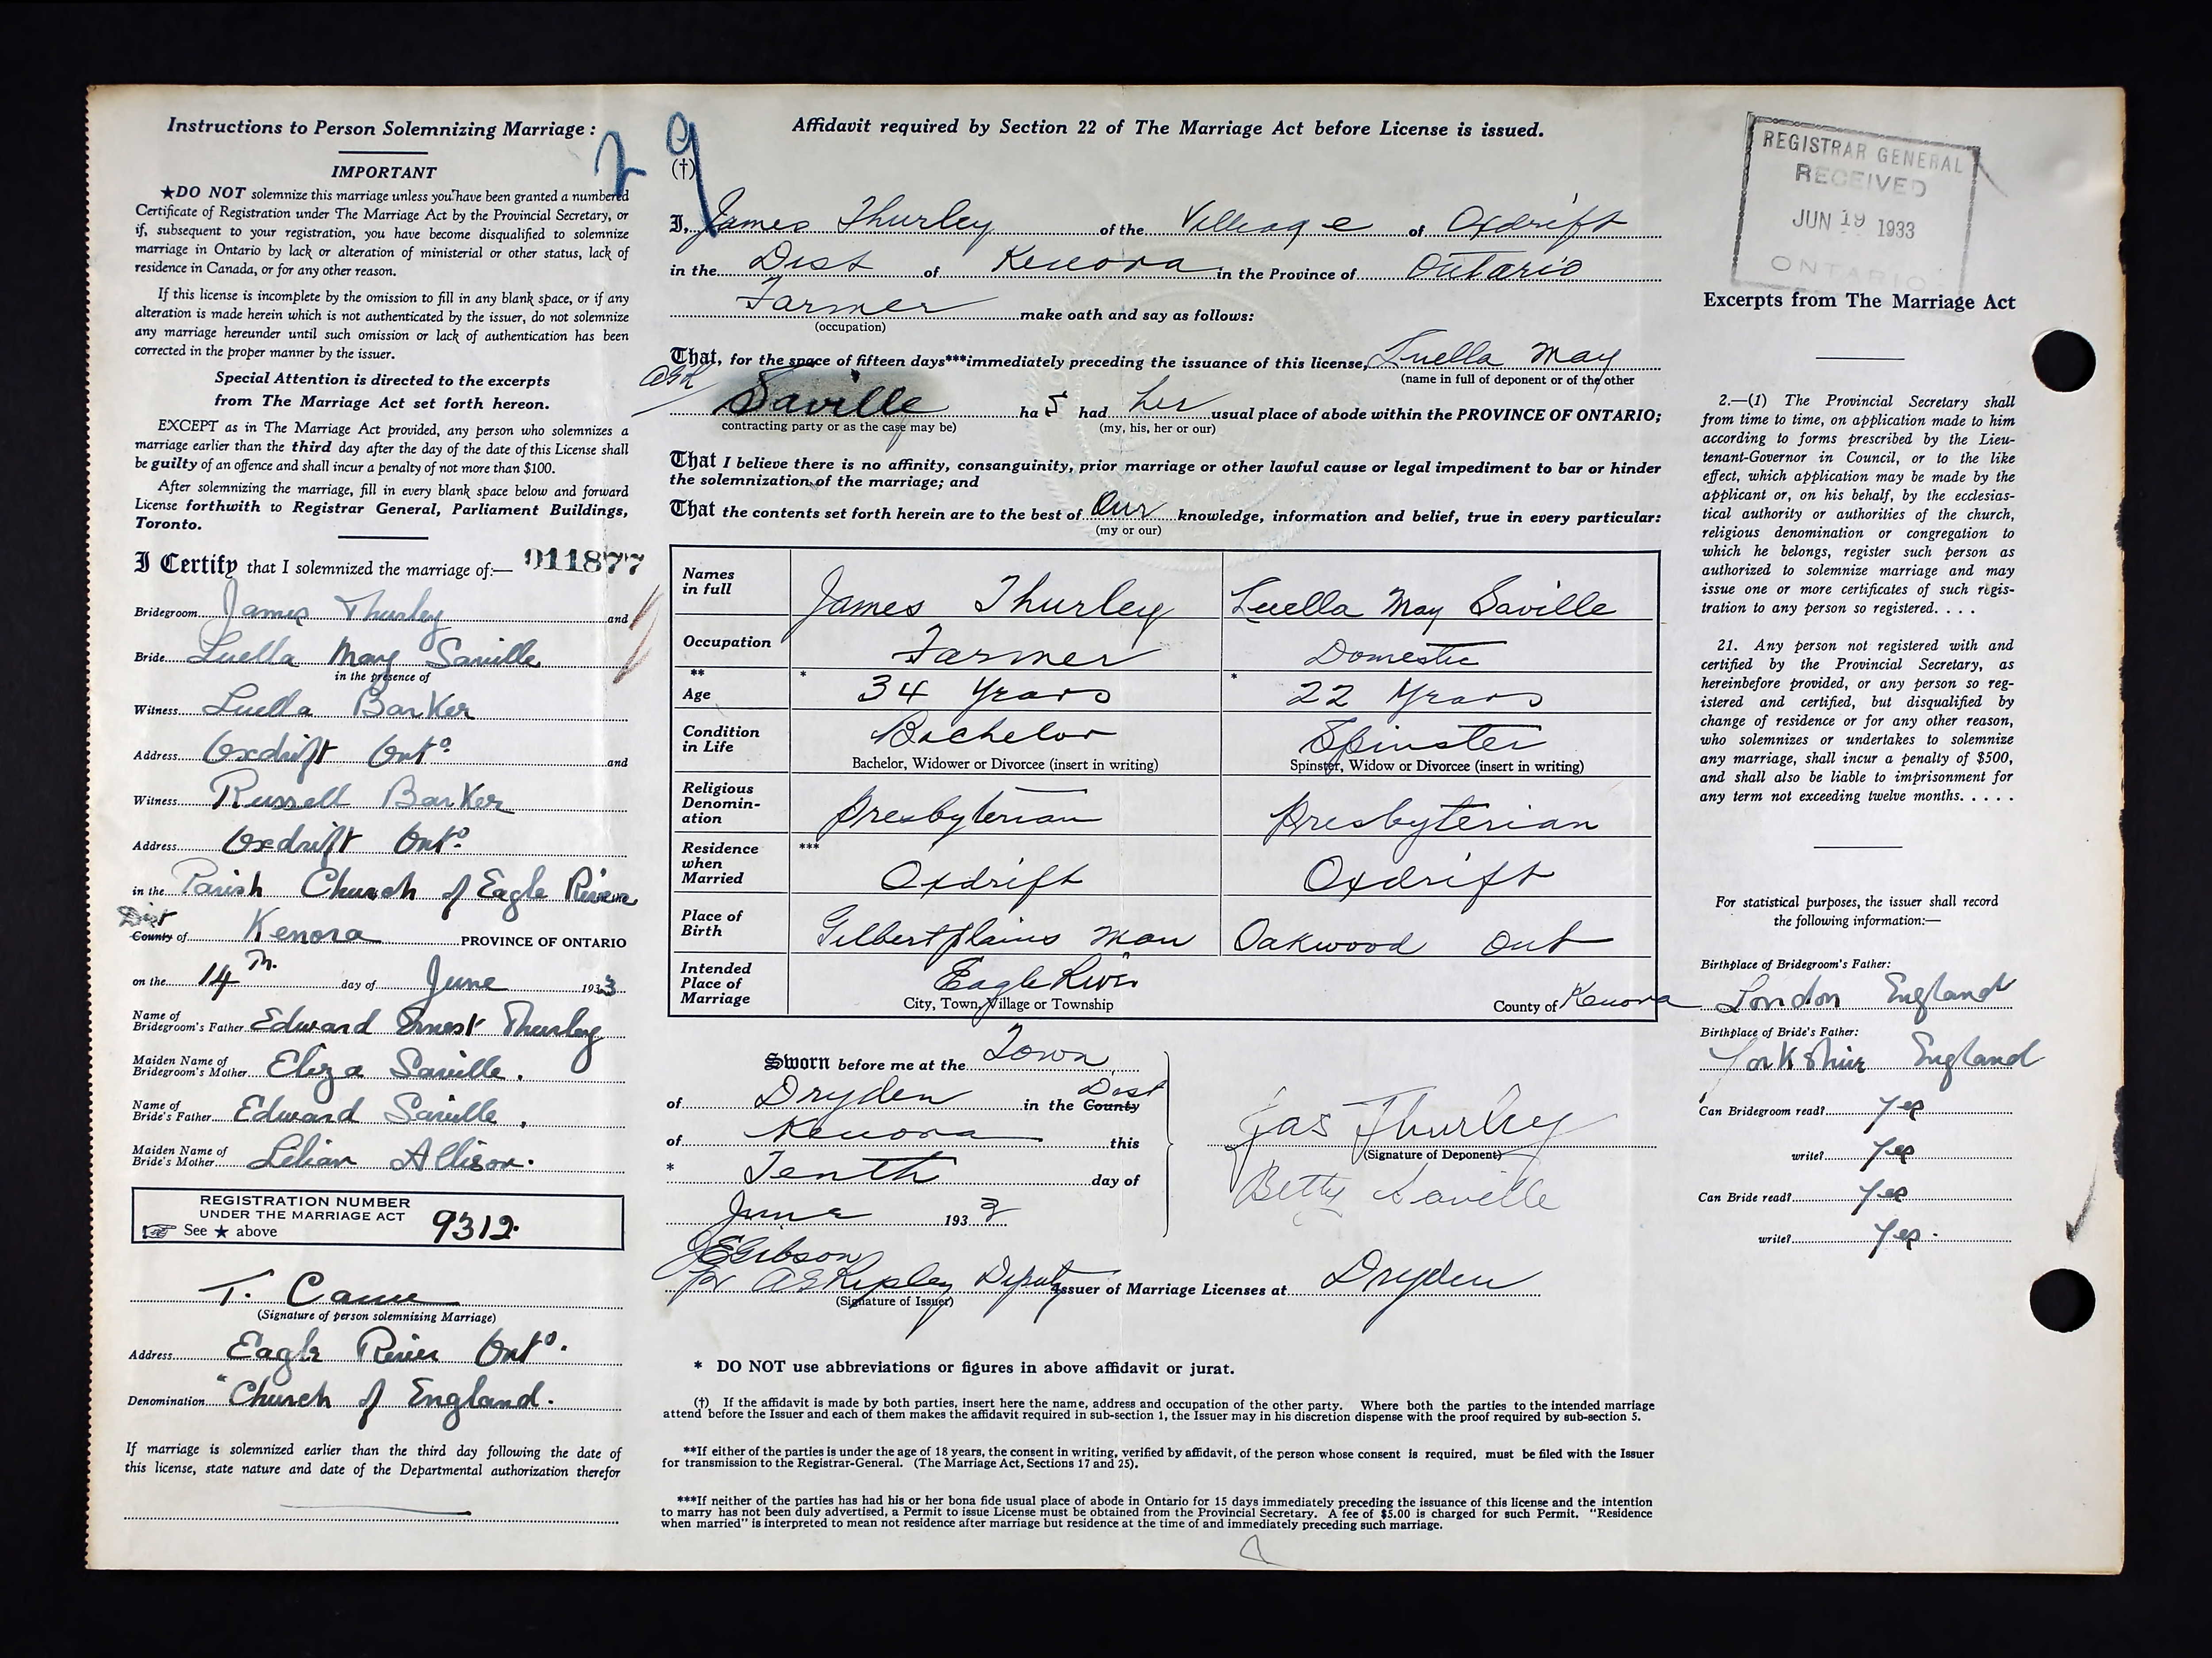 Instructions to Person Solemnizing Marriage:
IMPORTANT
★DO NOT solemnize this marriage unless you have been granted a numbered
Certificate of Registration under The Marriage Act by the Provincial Secretary, or
if, subsequent to your registration, you have become disqualified to solemnize
marriage in Ontario by lack or alteration of ministerial or other status, lack of
residence in Canada, or for any other reason.
If this license is incomplete by the omission to fill in any blank space, or if any
alteration is made herein which is not authenticated by the issuer, do not solemnize
any marriage hereunder until such omission or lack of authentication has been
corrected in the proper manner by the issuer.
Special Attention is directed to the excerpts
from The Marriage Act set forth hereon.
EXCEPT as in The Marriage Act provided, any person who solemnizes a
marriage earlier than the third day after the day of the date of this License shall
be guilty of an offence and shall incur a penalty of not more than $100.
After solemnizing the marriage, fill in every blank space below and forward
License forthwith to Registrar General, Parliament Buildings,
Toronto.
I Certify that I solemnized the marriage of:— 011877
Bridegroom James Thurley and
Bride Luella May Saville
in the presence of
Witness Luella Barker
Address Oxdrift Onto. and
Witness Russell Barker
Address Oxdrift Onto.
in the Parish Church of Eagle River
Dist
County of Kenora PROVINCE OF ONTARIO
on the 14th. day of June 1933
Name of
Bridegroom's Father Edward Ernest Thurley
Maiden Name of
Bridegroom's Mother Eliza Saville.
Name of
Bride's Father Edward Saville.
Maiden Name of
Bride's Mother Lilian Allison.
REGISTRATION NUMBER
UNDER THE MARRIAGE ACT 9312.
☞ See ★ above
(Signature of person solemnizing Marriage)
Address Eagle River Onto.
Denomination "Church of England.
If marriage is solemnized earlier than the third day following the date of
this license, state nature and date of the Departmental authorization therefor
29
Affidavit required by Section 22 of The Marriage Act before License is issued.
(†)
I, James Thurley of the Village of Oxdrift
in the Dist of Kenora in the Province of Ontario
Farmer make oath and say as follows:
(occupation)
That, for the space of fifteen days***immediately preceding the issuance of this license, Luella May
(name in full of deponent or of the other
Saville has had her usual place of abode within the PROVINCE OF ONTARIO;
contracting party or as the case may be) (my, his, her or our)
That I believe there is no affinity, consanguinity, prior marriage or other lawful cause or legal impediment to bar or hinder
the solemnization of the marriage; and
That the contents set forth herein are to the best of Our knowledge, information and belief, true in every particular:
(my or our)
Names
in full James Thurley Luella May Saville
Occupation Farmer Domestic
**
Age * 34 Years * 22 Years
Condition
in Life Bachelor Spinster
Bachelor, Widower or Divorcee (insert in writing) Spinster, Widow or Divorcee (insert in writing)
Religious
Denomin-
ation Presbyterian Presbyterian
Residence
when
Married *** Oxdrift Oxdrift
Place of
Birth Gilbert plains Man Oakwood Ont
Intended
Place of
Marriage Eagle River County of Kenora
City, Town, Village or Township
Sworn before me at the Town
of Dryden in the County Dist
of Kenora this
* Tenth day of
June 1933
Jas Thurley
(Signature of Deponent)
Betty Saville
JE Gibson
Deputy Issuer of Marriage Licenses at Dryden
(Signature of Issuer)
* DO NOT use abbreviations or figures in above affidavit or jurat.
(†) If the affidavit is made by both parties, insert here the name, address and occupation of the other party. Where both the parties to the intended marriage
attend before the Issuer and each of them makes the affidavit required in sub-section 1, the Issuer may in his discretion dispense with the proof required by sub-section 5.
**If either of the parties is under the age of 18 years, the consent in writing, verified by affidavit, of the person whose consent is required, must be filed with the Issuer
for transmission to the Registrar-General. (The Marriage Act, Sections 17 and 25).
***If neither of the parties has had his or her bona fide usual place of abode in Ontario for 15 days immediately preceding the issuance of this license and the intention
to marry has not been duly advertised, a Permit to issue License must be obtained from the Provincial Secretary. A fee of $5.00 is charged for such Permit. "Residence
when married" is interpreted to mean not residence after marriage but residence at the time of and immediately preceding such marriage.
REGISTRAR GENERAL
RECEIVED
JUN 19 1933
ONTARIO
Excerpts from The Marriage Act
2.—(1) The Provincial Secretary shall
from time to time, on application made to him
according to forms prescribed by the Lieu-
tenant-Governor in Council, or to the like
effect, which application may be made by the
applicant or, on his behalf, by the ecclesias-
tical authority or authorities of the church,
religious denomination or congregation to
which he belongs, register such person as
authorized to solemnize marriage and may
issue one or more certificates of such regis-
tration to any person so registered. . . .
21. Any person not registered with and
certified by the Provincial Secretary, as
hereinbefore provided, or any person so reg-
istered and certified, but disqualified by
change of residence or for any other reason,
who solemnizes or undertakes to solemnize
any marriage, shall incur a penalty of $500,
and shall also be liable to imprisonment for
any term not exceeding twelve months. . . . .
For statistical purposes, the issuer shall record
the following information:—
Birthplace of Bridegroom's Father:
London England
Birthplace of Bride's Father:
Yorkshire England
Can Bridegroom read? Yes
write? Yes
Can Bride read? Yes
write? Yes.